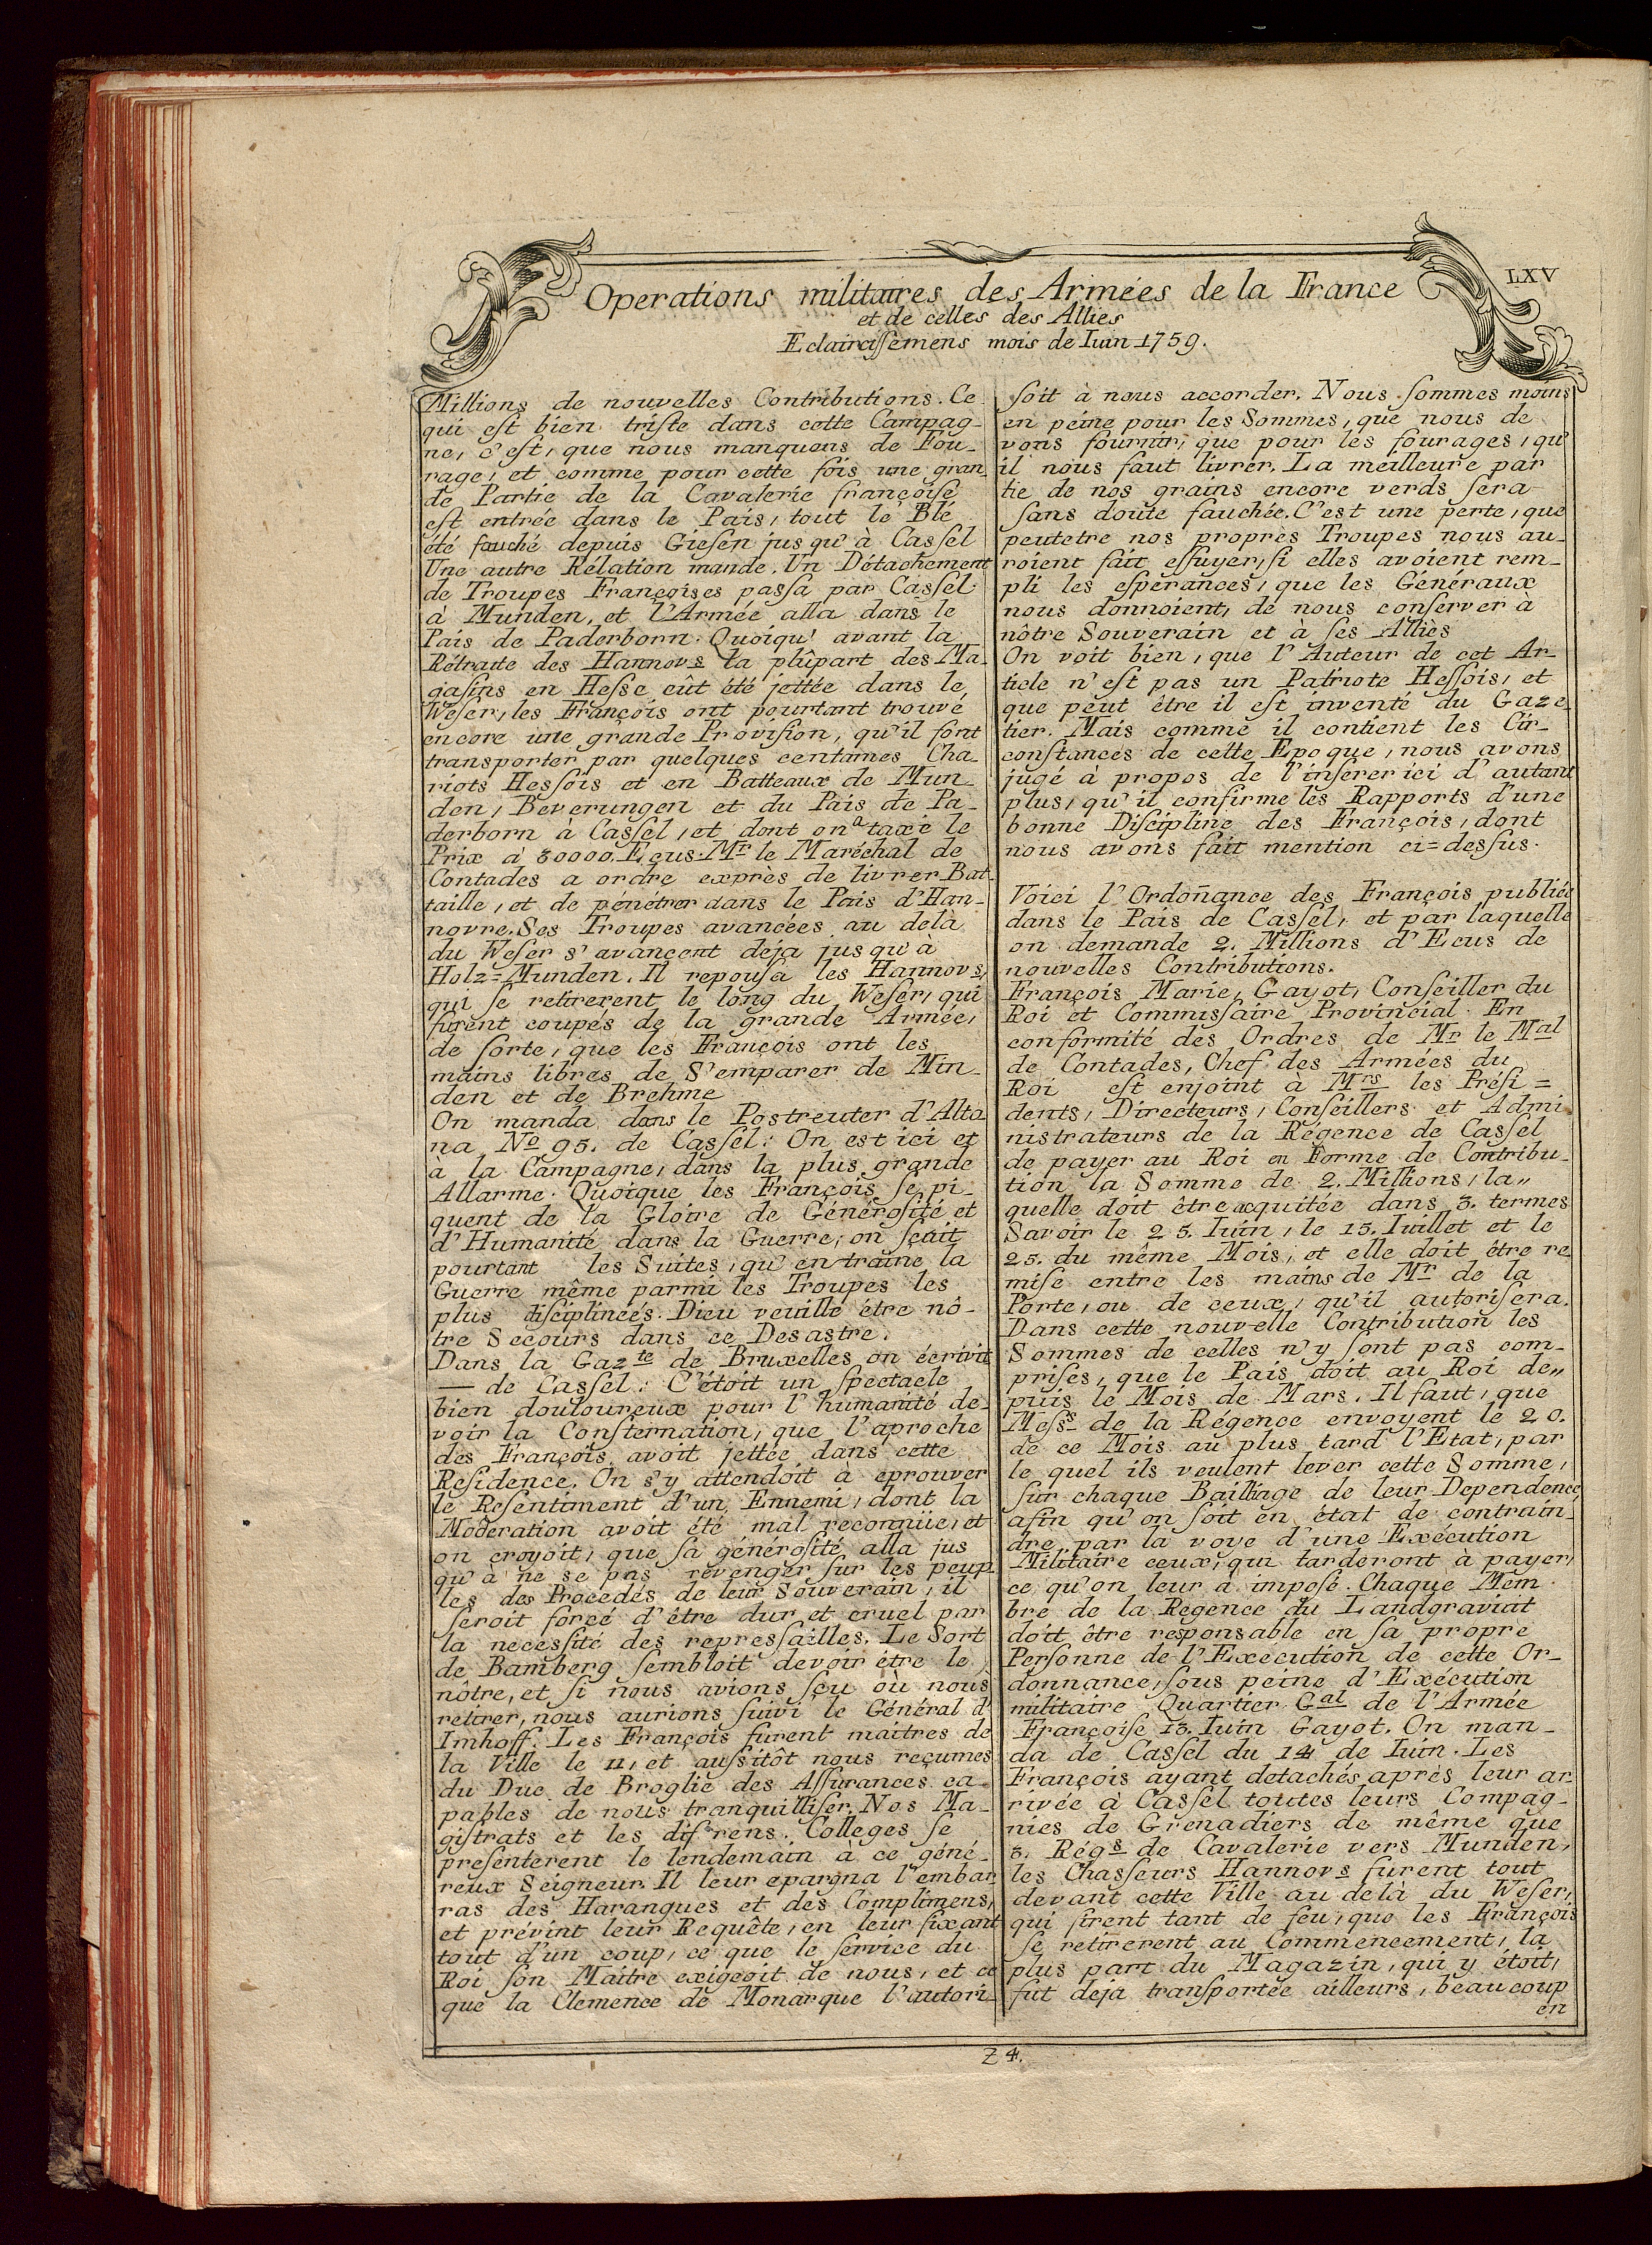 LXV
Operations militaires des Armées de la France
et de celles des Allies
Eclaircißemens mois de Iuin 1759.
Millions de nouvelles Contributions. Ce
qui eſt bien triſte dans cette Campag-
ne, c'eſt, que nous manquons de Fou-
rage, et comme pour cette fois une gran
de Partie de la Cavalerie françoiſe
eſt entrée dans le Païs, tout le Blé
été fauché depuis Gieſen jusqu'à Caſſel
Une autre Rélation mande. Un Détachement
de Troupes Françoises paſſa par Caſſel
à Munden, et l'Armée alla dans le
Païs de Paderborn. Quoiqu' avant la
Rétraite des Hannovs la plûpart des Ma-
gaſins en Heſſe eût été jettée dans le
Weſer, les François ont pourtant trouvé
encore une grande Proviſion, qu'il font
transporter par quelques centaines Cha-
riots Heſſois et en Batteaux de Mun
den, Beverungen et du Païs de Pa-
derborn à Caſſel, et dont on a taxé le
Prix à 30000. Ecus. Mr le Maréchal de
Contades a ordre exprès de livrer Bat-
taille, et de pénétrer dans le Païs d'Han-
novre. Ses Troupes avancées au delà
du Weſer s'avancent déja jusqu'à
Holz=Munden. Il repouſa les Hannovs,
qui ſe retirerent le long du Weſer, qui
furent coupés de la grande Armée,
de ſorte, que les François ont les
mains libres de S'emparer de Min-
den et de Brehme
On manda dans le Postreuter d'Alto
na No 95. de Caſſel: On est ici et
à la Campagne, dans la plus grande
Allarme. Quoique les François ſe pi-
quent de la Gloire de Généroſité et
d'Humanité dans la Guerre, on ſçait
pourtant les Suites, qu'entraine la
Guerre même parmi les Troupes les
plus disciplinées. Dieu veuille être nô-
tre Secours dans ce Desastre.
Dans la Gazte de Bruxelles on écrivit
— de Caſſel: C'étoit un ſpectacle
bien douloureux pour l'humanité de-
voir la Conſternation, que l'aproche
des François avoit jettée dans cette
Reſidence. On s'y attendoit à eprouver
le Reſentiment d'un Ennemi, dont la
Moderation avoit été mal reconnüe, et
on croyoit, que ſa généroſité alla jus
qu'à ne se pas revenger ſur les peup-
les des Procedés de leur Souverain, il
ſeroit forcé d'être dur et cruel par
la neceſſité des repreſſailles. Le Sort
de Bamberg ſembloit devoir être le
nôtre, et ſi nous avions ſçu où nous
retirer, nous aurions ſuivi le Général d'
Imhoff. Les François furent maitres de
la Ville le 11, et auſſitôt nous reçumes
du Duc de Broglie des Aſſurances ca-
pables de nous tranquilliſer. Nos Ma-
giſtrats et les difrens. Colleges ſe
preſenterent le lendemain à ce géné-
reux Seigneur. Il leur epargna l'embar-
ras des Harangues et des Complimens,
et prévint leur Requête, en leur fixant
tout d'un coup, ce que le ſervice du
Roi ſon Maitre exigeoit de nous, et ce
que la Clemence de Monarque l'autori-
ſoit à nous accorder. Nous ſommes moins
en peine pour les Sommes, que nous de
vons fournir, que pour les fourages, qu'
il nous faut livrer. La meilleure par
tie de nos grains encore verds ſera
ſans doute fauchée. C'est une perte, que
peutetre nos propres Troupes nous au-
roient fait eſſuyer, ſi elles avoient rem-
pli les eſpérances, que les Généraux
nous donnoient, de nous conſerver à
nôtre Souverain et à ſes Alliès
On voit bien, que l'Auteur de cet Ar-
ticle n'eſt pas un Patriote Heſſois, et
que peut être il eſt inventé du Gaze-
tier. Mais comme il contient les Cir-
conſtances de cette Epoque, nous avons
jugé à propos de l'inſerer ici d'autant
plus, qu'il confirme les Rapports d'une
bonne Diſcipline des François, dont
nous avons fait mention ci=deſſus.
Voici l'Ordoñance des François publiée
dans le Païs de Caſſel, et par laquelle
on demande 2. Millions d'Ecus de
nouvelles Contributions.
François Marie, Gayot, Conſeiller du
Roi et Commiſſaire Provincial. En
conformité des Ordres de Mr le Mal
de Contades, Chef des Armées du
Roi est enjoint à Mrs les Préſi=
dents, Directeurs, Conſeillers et Admi
nistrateurs de la Régence de Caſſel
de payer au Roi en Forme de Contribu-
tion la Somme de 2. Millions, la„
quelle doit être acquitée dans 3. termes
Savoir le 25. Iuin, le 15. Iuillet et le
25. du même Mois, et elle doit être re
miſe entre les mains de Mr de la
Porte, ou de ceux, qu'il autoriſera.
Dans cette nouvelle Contribution les
Sommes de celles n'y ſont pas com-
priſes, que le Païs doit au Roi de„
puis le Mois de Mars. Il faut, que
Meſſs de la Régence envoyent le 20.
de ce Mois au plus tard l'Etat, par
le quel ils veulent lever cette Somme,
ſur chaque Bailliage de leur Dependence,
afin qu'on ſoit en état de contrain-
dre par la voye d'une Exécution
Militaire ceux, qui tarderont à payer,
ce qu'on leur à impoſé. Chaque Mem
bre de la Regence du Landgraviat
doit être responsable en ſa propre
Perſonne de l'Execution de cette Or-
donnance, ſous peine d'Exécution
militaire Quartier Gal de l'Armée
Françoiſe 13. Iuin Gayot. On man-
da de Caſſel du 14 de Iuin. Les
François ayant detachés après leur ar-
rivée à Caſſel toutes leurs Compag-
nies de Grenadiers de même que
3. Régs de Cavalerie vers Munden,
les Chaſſeurs Hannovs furent tout
devant cette Ville au delà du Weſer,
qui firent tant de feu, que les François
ſe retirerent au Commencement, la
plus part du Magazin, qui y étoit,
fut deja tranſportée ailleurs, beaucoup
en
Z 4.